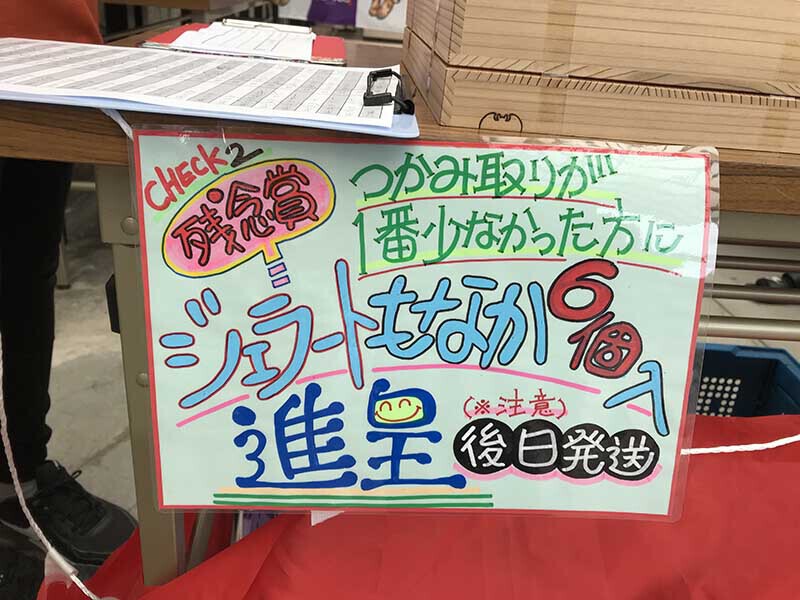 CHECK2
残念賞
つかみ取りが
1番少なかった方に
ジェラートもなか6個入
進呈
(※注意)
後日発送